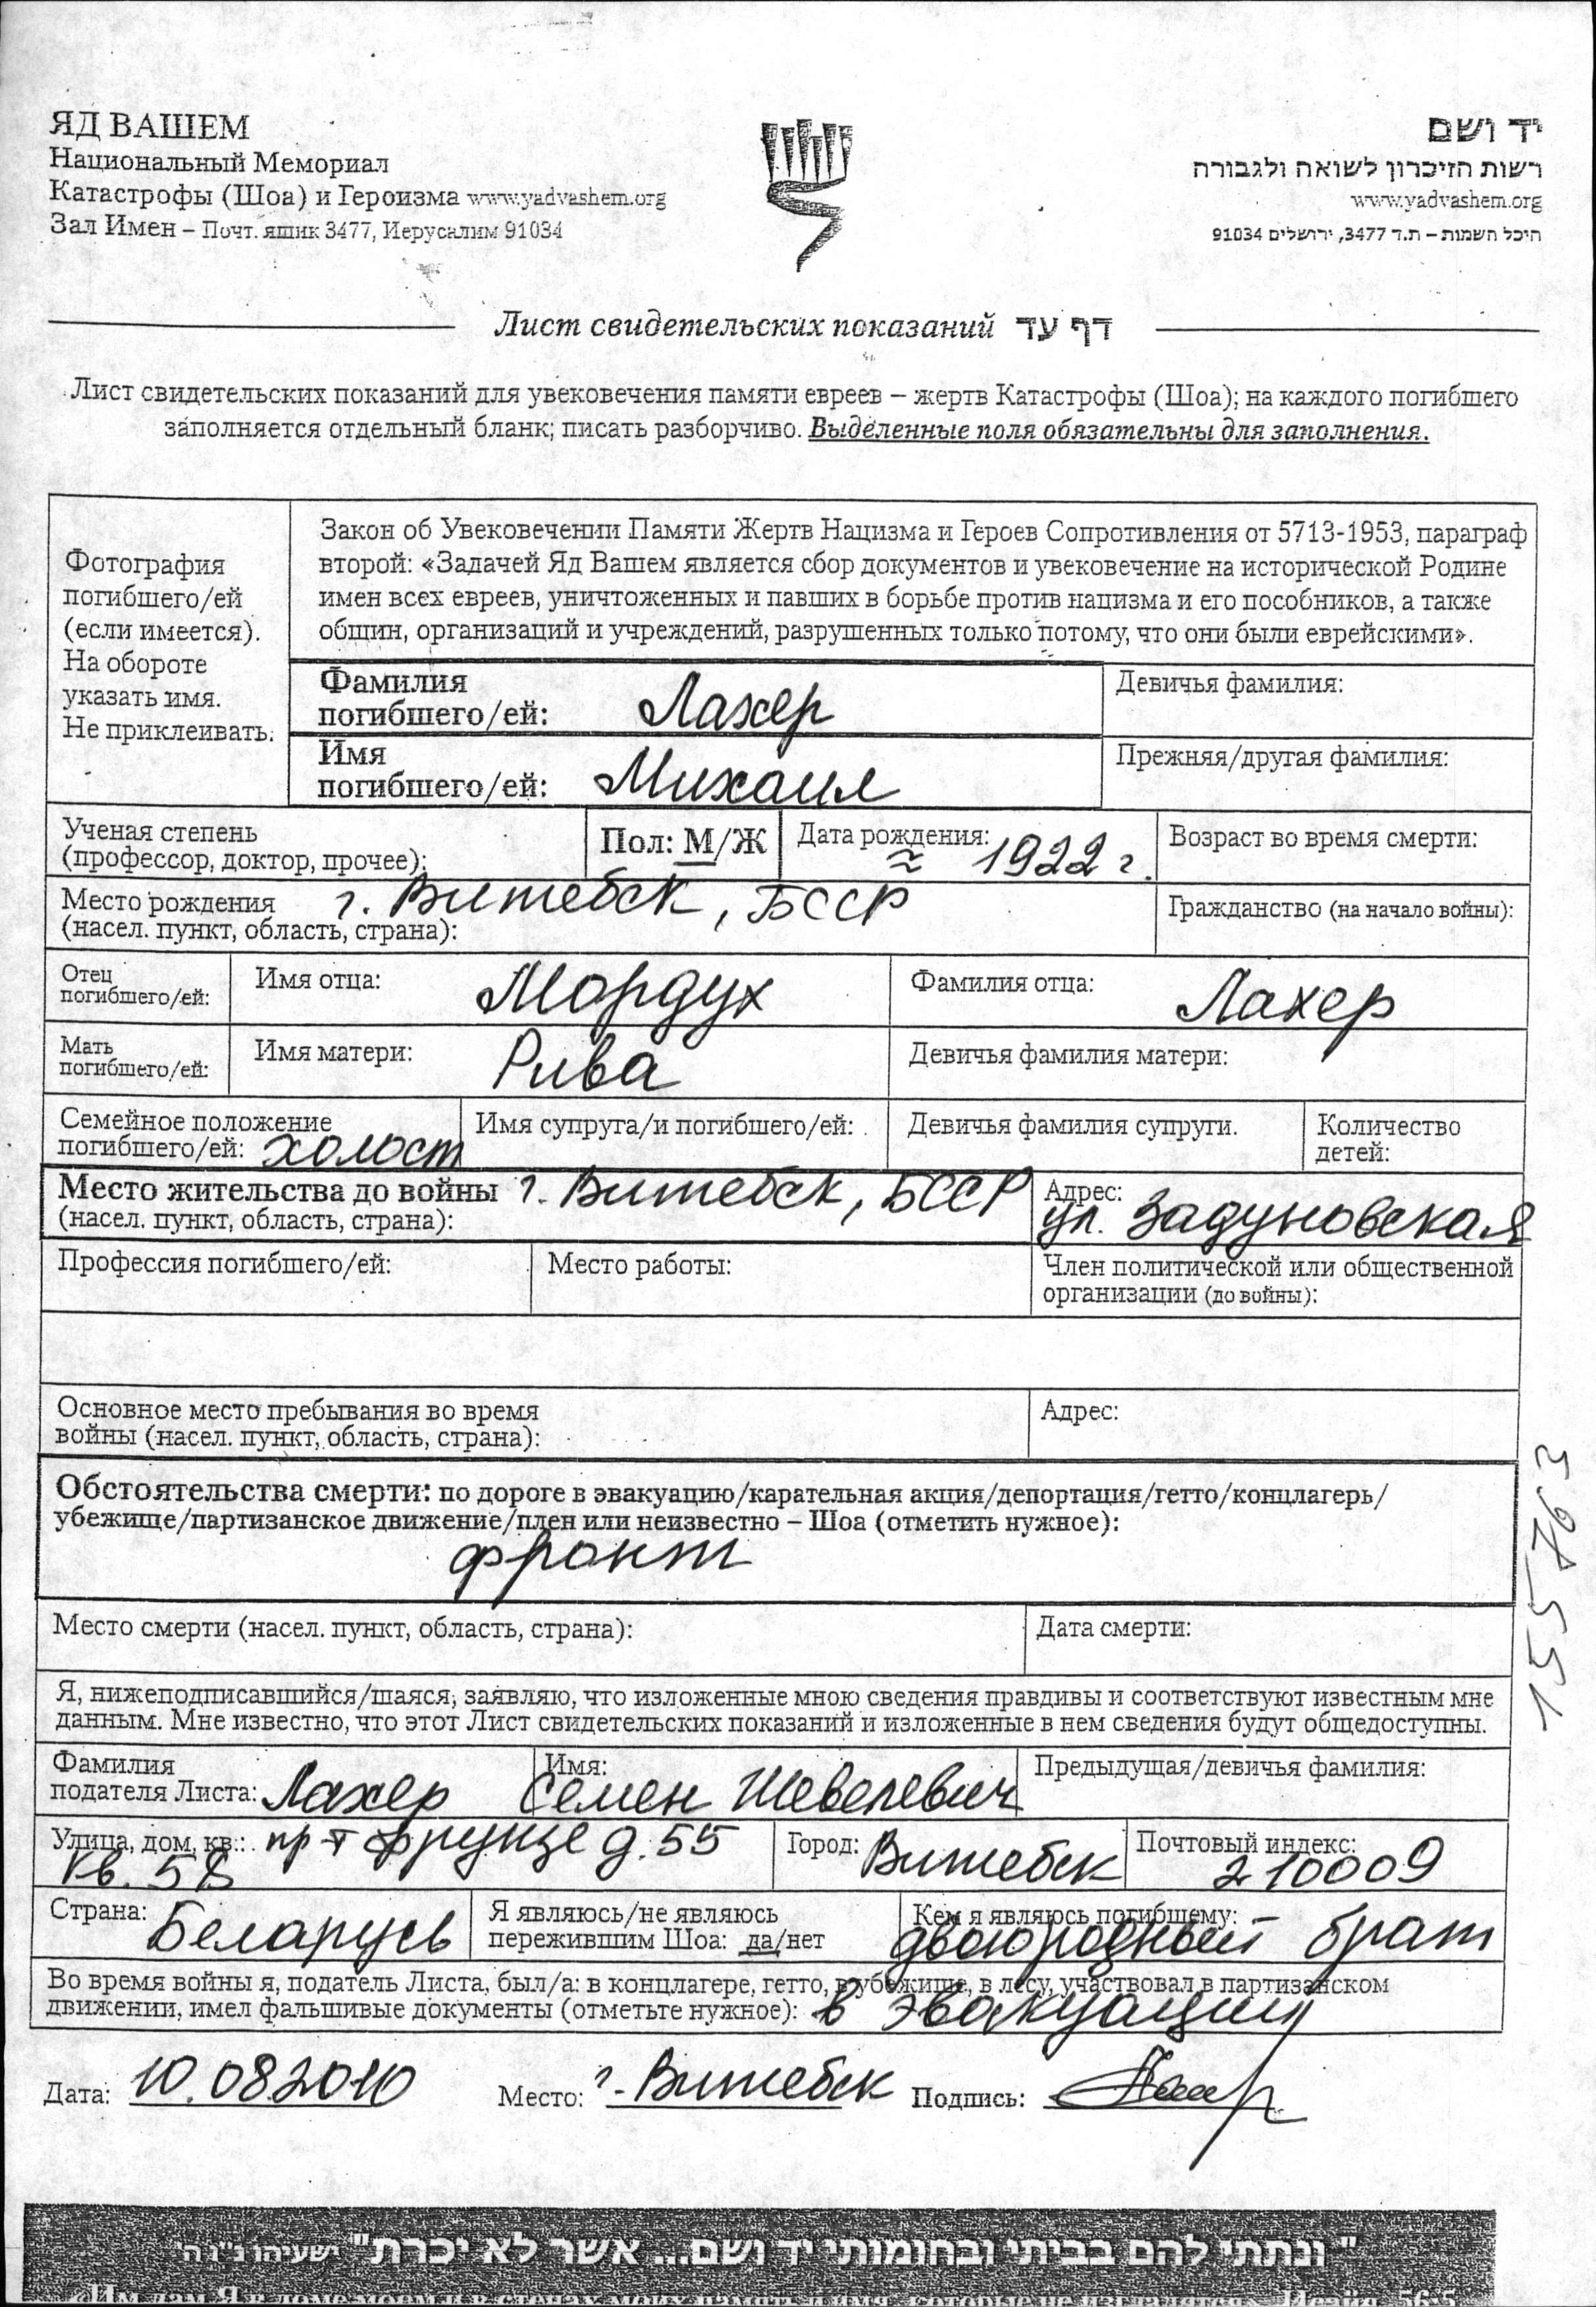 ЯД ВАШЕМ
Национальный Мемориал
Катастрофы (Шоа) и Героизма www.yadvashem.org
Зал Имен – Почт. ящик 3477, Иерусалим 91034
יד ושם
רשות הזיכרון לשואה ולגבורה
www.yadvashem.org
היכל השמות – ת.ד 3477, ירושלים 91034
Лист свидетельских показаний דף עד
Лист свидетельских показаний для увековечения памяти евреев – жертв Катастрофы (Шоа); на каждого погибшего
заполняется отдельный бланк; писать разборчиво. Выделенные поля обязательны для заполнения.
Фотография
погибшего/ей
(если имеется).
На обороте
указать имя.
Не приклеивать.
Закон об Увековечении Памяти Жертв Нацизма и Героев Сопротивления от 5713-1953, параграф
второй: «Задачей Яд Вашем является сбор документов и увековечение на исторической Родине
имен всех евреев, уничтоженных и павших в борьбе против нацизма и его пособников, а также
общин, организаций и учреждений, разрушенных только потому, что они были еврейскими».
Фамилия
погибшего/ей: Лахер
Девичья фамилия:
Имя
погибшего/ей: Михаил
Прежняя/другая фамилия:
Ученая степень
(профессор, доктор, прочее):
Пол: М/Ж
Дата рождения: ≈ 1922 г.
Возраст во время смерти:
Место рождения г. Витебск, БССР
(насел. пункт, область, страна):
Гражданство (на начало войны):
Отец
погибшего/ей:
Имя отца: Мордух
Фамилия отца: Лахер
Мать
погибшего/ей:
Имя матери: Рива
Девичья фамилия матери:
Семейное положение
погибшего/ей: холост
Имя супруга/и погибшего/ей:
Девичья фамилия супруги.
Количество
детей:
Место жительства до войны г. Витебск, БССР
(насел. пункт, область, страна):
Адрес:
ул. Задуновская
Профессия погибшего/ей:
Место работы:
Член политической или общественной
организации (до войны):
Основное место пребывания во время
войны (насел. пункт, область, страна):
Адрес:
Обстоятельства смерти: по дороге в эвакуацию/карательная акция/депортация/гетто/концлагерь/
убежище/партизанское движение/плен или неизвестно – Шоа (отметить нужное):
фронт
155763
Место смерти (насел. пункт, область, страна):
Дата смерти:
Я, нижеподписавшийся/шаяся, заявляю, что изложенные мною сведения правдивы и соответствуют известным мне
данным. Мне известно, что этот Лист свидетельских показаний и изложенные в нем сведения будут общедоступны.
Фамилия
подателя Листа: Лахер
Имя:
Семен Шевелевич
Предыдущая/девичья фамилия:
Улица, дом, кв.: пр-т Фрунзе д. 55
кв. 58
Город: Витебск
Почтовый индекс:
210009
Страна: Беларусь
Я являюсь/не являюсь
пережившим Шоа: да/нет
Кем я являюсь погибшему:
двоюродный брат
Во время войны я, податель Листа, был/а: в концлагере, гетто, в убежище, в лесу, участвовал в партизанском
движении, имел фальшивые документы (отметьте нужное): в эвакуации
Дата: 10.08.2010 Место: г. Витебск Подпись:
"ונתתי להם בביתי ובחומותי יד ושם... אשר לא יכרת" ישעיהו נ"ו ה'